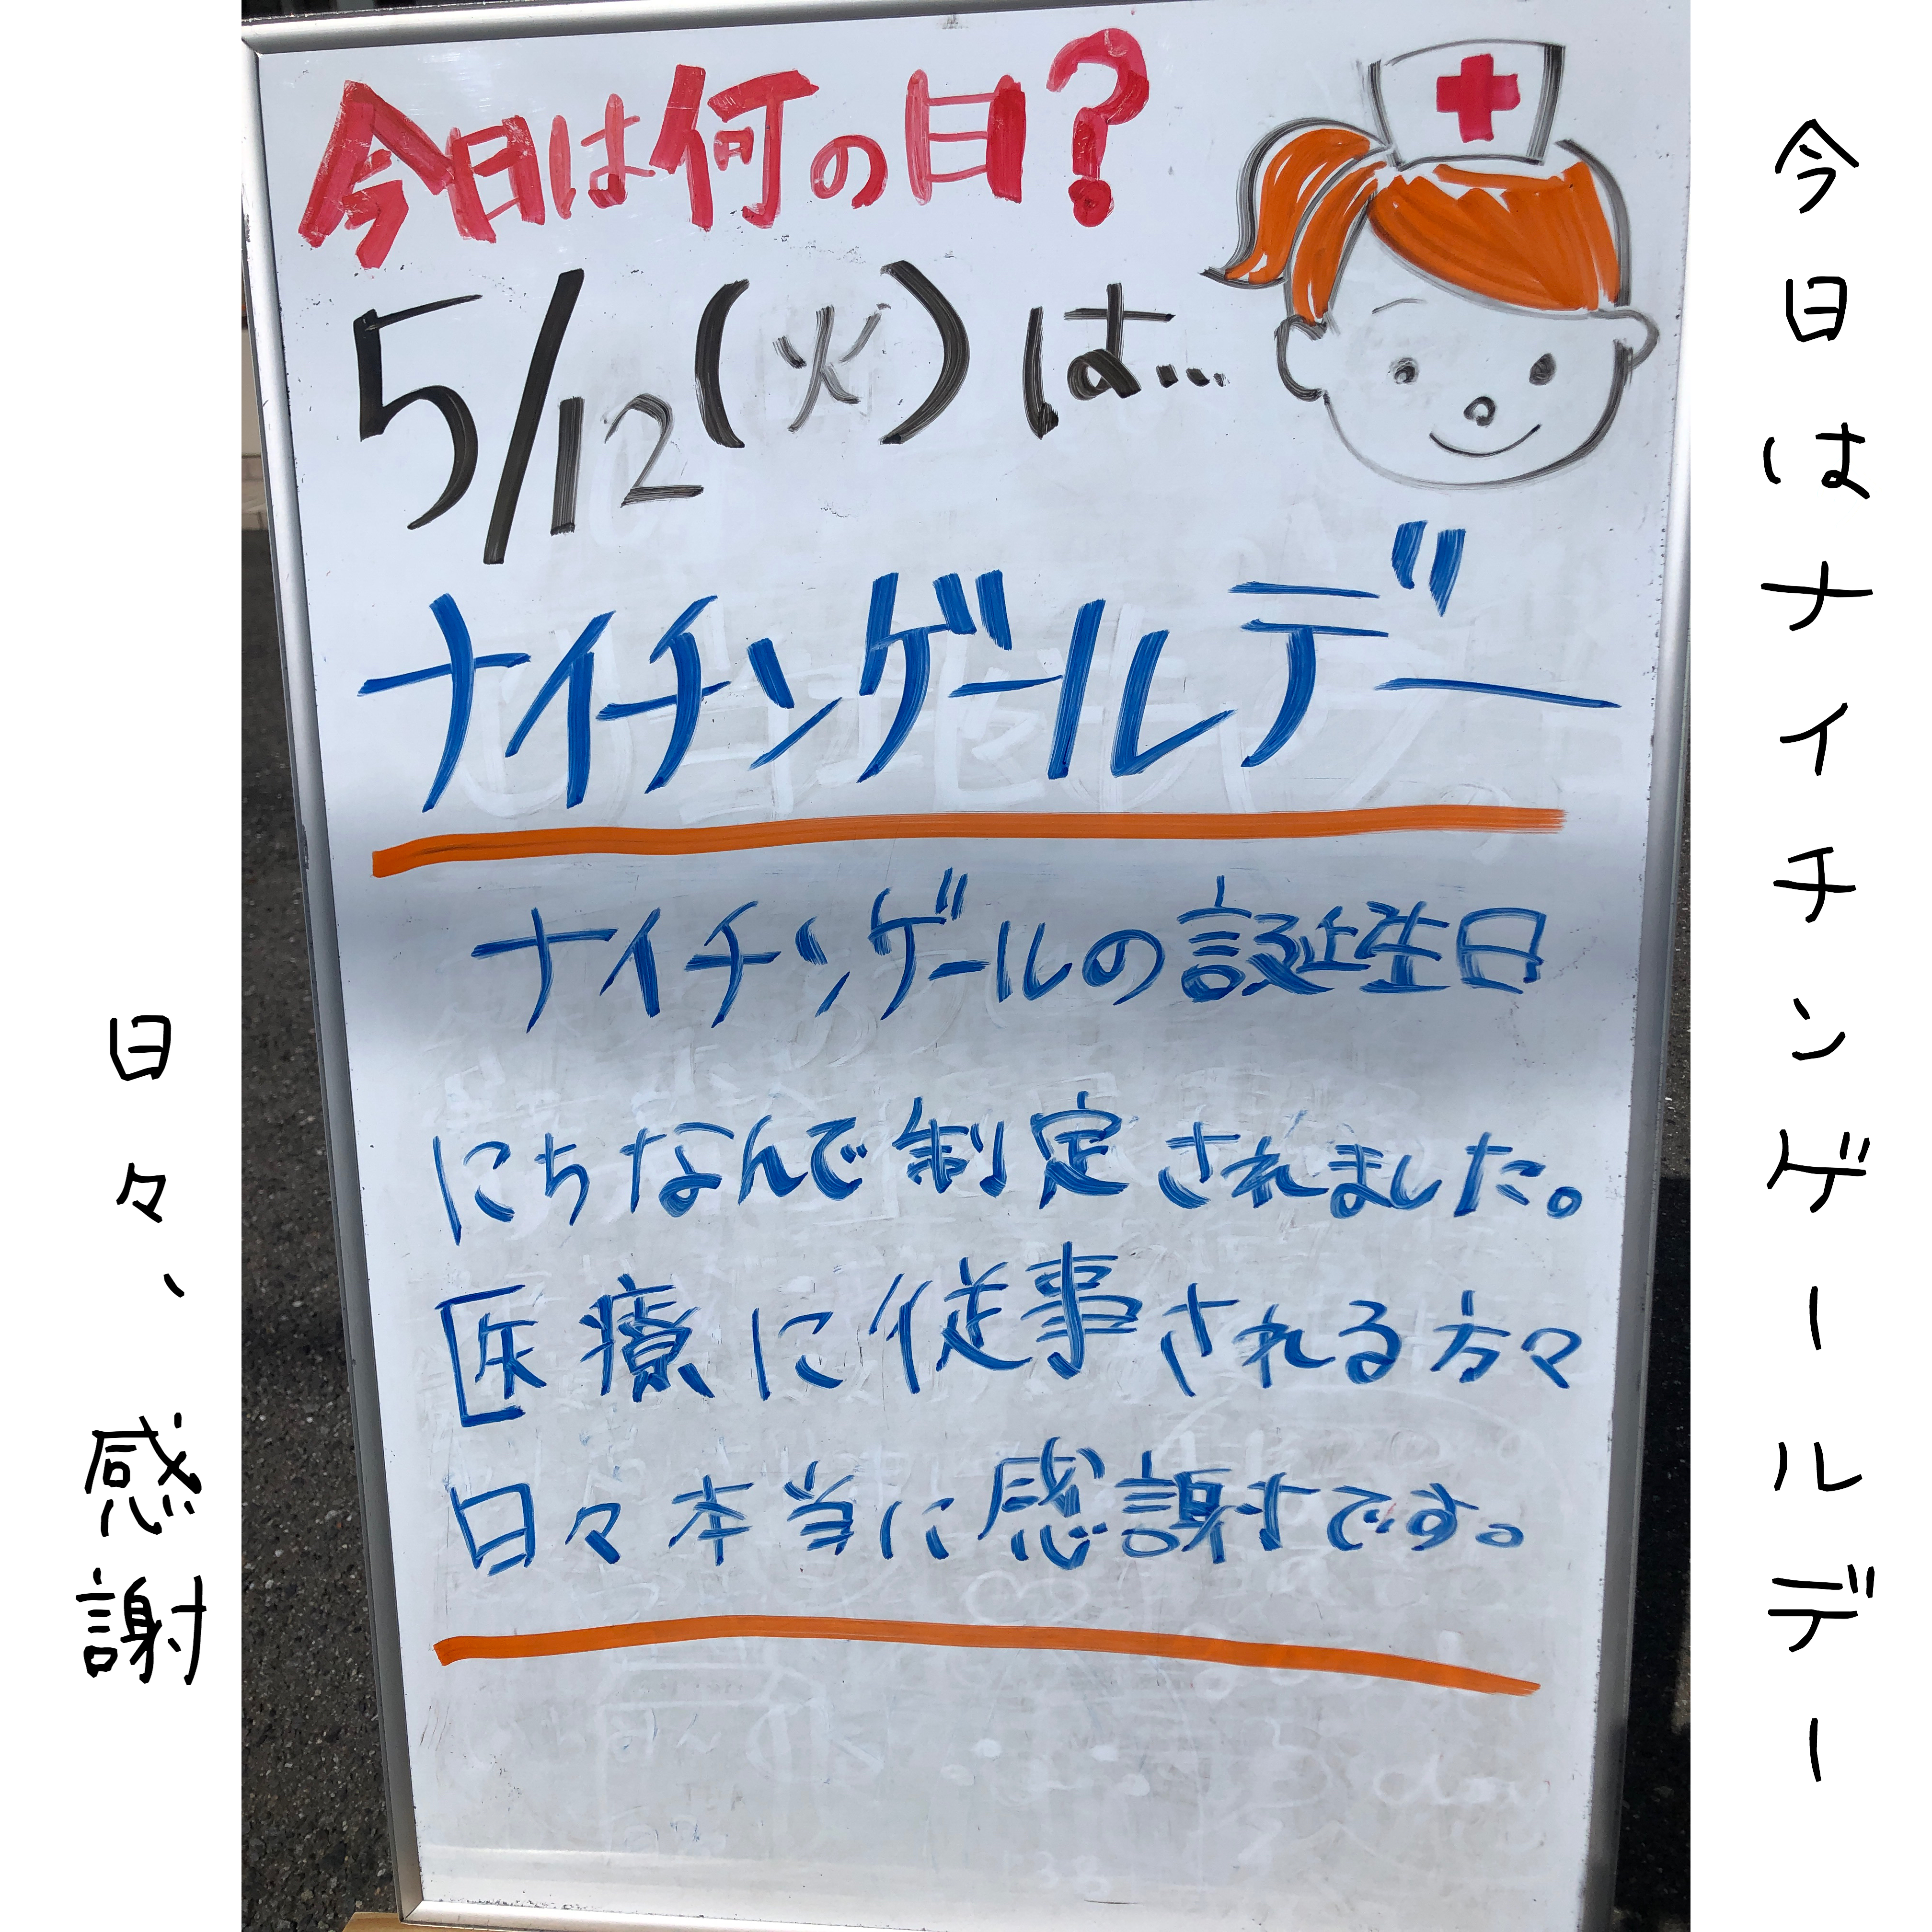 今日は何の日?
5/12(火)は...
ナイチンゲールデー
ナイチンゲールの誕生日
にちなんで制定されました。
医療に従事される方々
日々本当に感謝です。
今日はナイチンゲールデー
日々、感謝